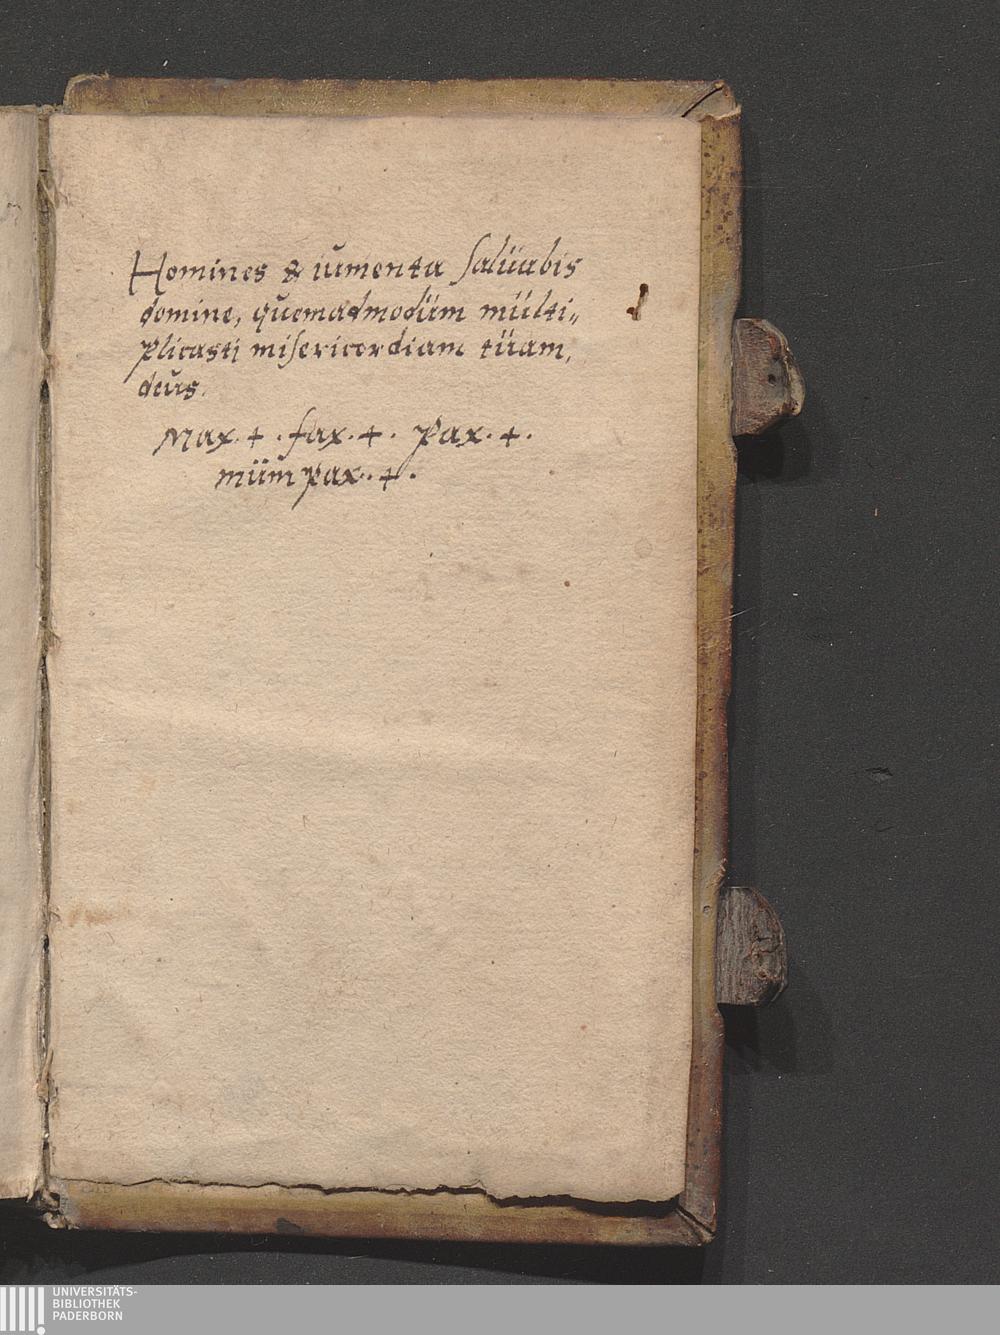 Homines & iumenta saluabis
domine, quemadmodum multi„
plicasti misericordiam tuam,
deus.
Max. +. fax. +. Pax. +.
mum pax.. +.
UNIVERSITÄTS-
BIBLIOTHEK
PADERBORN